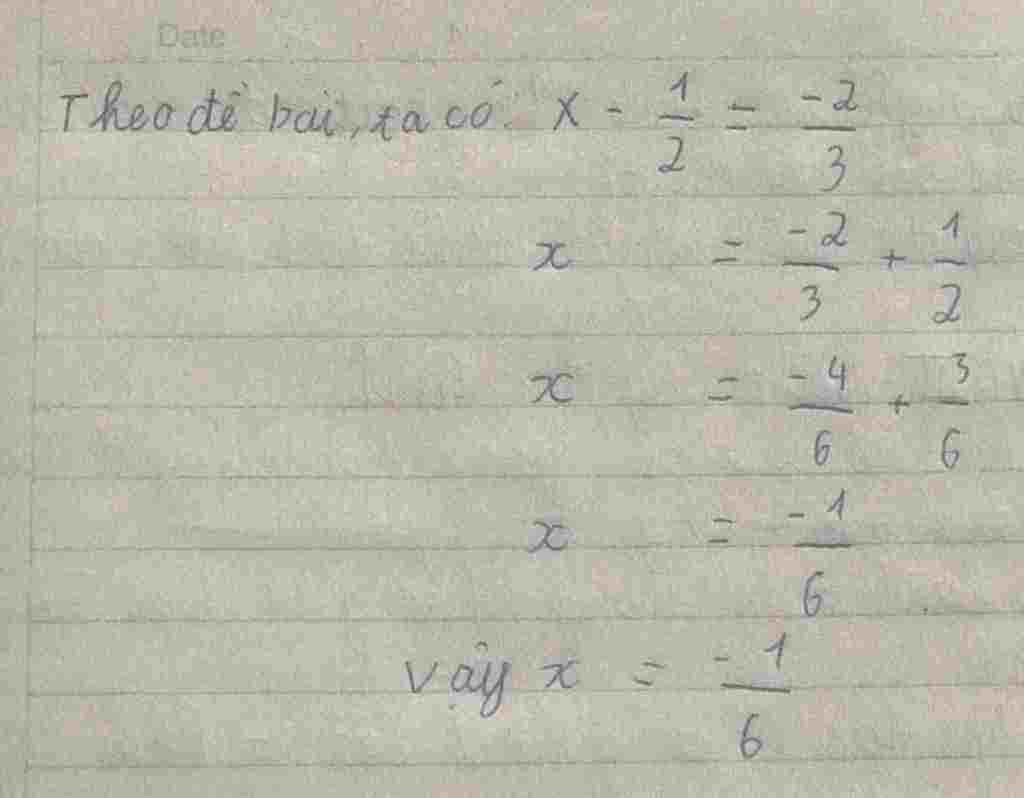 Date
Theo đề bài, ta có: x - 1/2 = -2/3
x = -2/3 + 1/2
x = -4/6 + 3/6
x = -1/6
Vậy x = -1/6